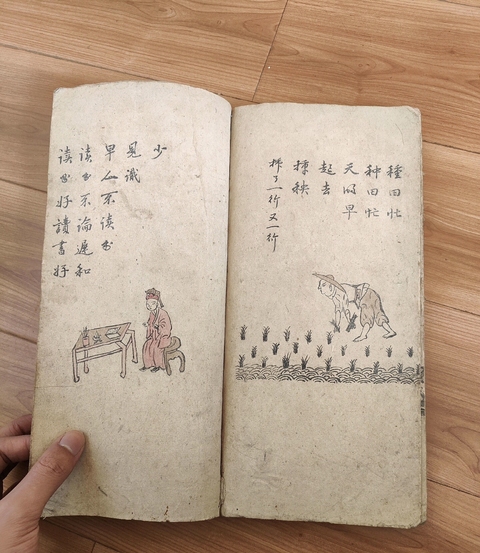 種田忙
种田忙
天明早
起去
種秧
插了一行又一行
读书好讀書好
读书不論遲和
早人不读书
見識
少